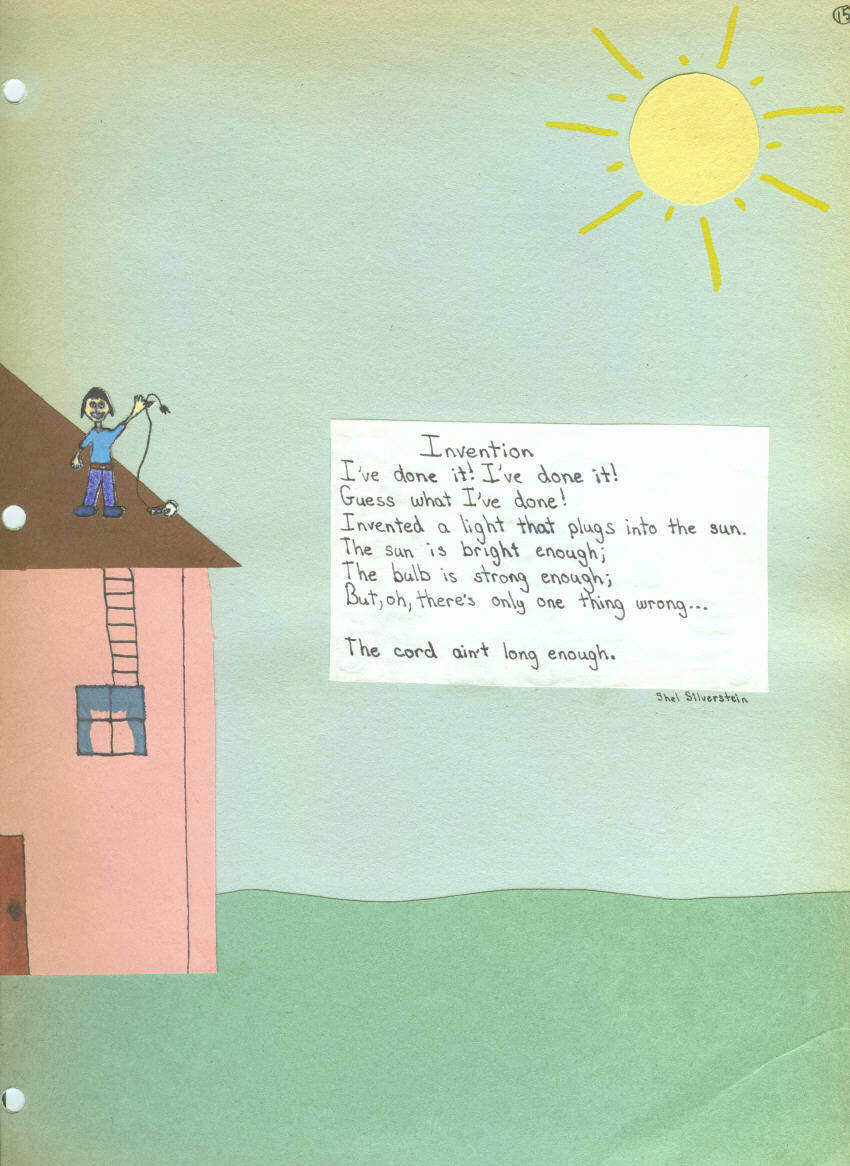 15
Invention
I've done it! I've done it!
Guess what I've done!
Invented a light that plugs into the sun.
The sun is bright enough;
The bulb is strong enough;
But, oh, there's only one thing wrong...
The cord ain't long enough.
Shel Silverstein